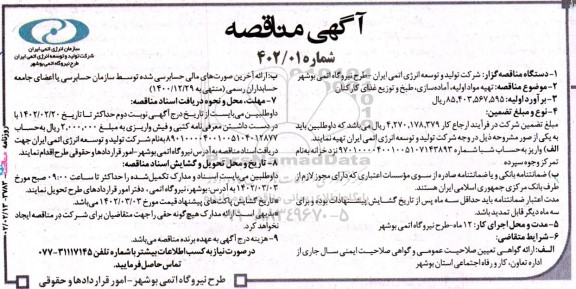 آگهی مناقصه
شماره ۴۰۲/۰۱
سازمان انرژی اتمی ایران
شرکت تولید و توسعه انرژی اتمی ایران
طرح نیروگاه اتمی بوشهر
۱- دستگاه مناقصه گزار: شرکت تولید و توسعه انرژی اتمی ایران - طرح نیروگاه اتمی بوشهر
۲- موضوع مناقصه: تهیه مواد اولیه، آماده‌سازی، طبخ و توزیع غذای کارکنان
۳- برآورد اولیه: ۸۵,۴۰۳,۵۶۷,۵۹۵ ریال
۴- نوع و مبلغ تضمین:
مبلغ تضمین شرکت در فرآیند ارجاع کار ۴,۲۷۰,۱۷۸,۳۷۹ ریال می‌باشد که داوطلبین باید
به یکی از صور مشروحه ذیل در وجه شرکت تولید و توسعه انرژی اتمی ایران تهیه نمایند
الف) واریز به حساب شبا شماره نزد خزانه به‌نام
تمرکز وجوه سپرده
ب) ضمانتنامه بانکی و یا ضمانتنامه صادره از سوی مؤسسات اعتباری که دارای مجوز لازم از
طرف بانک مرکزی جمهوری اسلامی ایران هستند.
مدت اعتبار ضمانتنامه باید حداقل سه ماه پس از تاریخ گشایش پیشنهادات بوده و برای
سه ماه دیگر قابل تمدید باشد.
۵- مدت و محل اجرای کار: ۱۲ ماه - طرح نیروگاه اتمی بوشهر
۶- شرایط متقاضی:
الف: ارائه گواهی تعیین صلاحیت عمومی و گواهی صلاحیت ایمنی سال جاری از
اداره تعاون، کار و رفاه اجتماعی استان بوشهر
ب: ارائه آخرین صورت‌های مالی حسابرسی شده توسط سازمان حسابرسی یا اعضای جامعه
حسابداران رسمی (منتهی به ۱۴۰۰/۱۲/۲۹)
۷- مهلت، محل و نحوه دریافت اسناد مناقصه:
داوطلبین می‌بایست از تاریخ درج آگهی نوبت دوم حداکثر تا تاریخ ۱۴۰۲/۰۲/۲۰ با
در دست داشتن معرفی‌نامه کتبی و فیش واریزی به مبلغ ۲,۰۰۰,۰۰۰ ریال به‌حساب
به‌نام شرکت تولید و توسعه انرژی اتمی ایران جهت
دریافت اسناد مناقصه به آدرس نیروگاه اتمی بوشهر - امور قراردادها و حقوقی طرح اقدام نمایند.
۸- تاریخ و محل تحویل و گشایش اسناد مناقصه:
داوطلبین می‌بایست اسناد و مدارک تکمیل‌شده را حداکثر تا ساعت ۰۹:۰۰ صبح مورخ
۱۴۰۲/۰۳/۰۳ به آدرس: بوشهر، نیروگاه اتمی، دفتر امور قراردادهای طرح تحویل نمایند.
*تاریخ گشایش پاکت‌های پیشنهاد قیمت مورخ ۱۴۰۲/۰۳/۰۳ می‌باشد.
*بدیهی است ارائه مدارک هیچ‌گونه حقی را جهت متقاضیان برای شرکت در مناقصه ایجاد
نخواهد کرد.
۹- هزینه درج آگهی به عهده برنده مناقصه می‌باشد.
در صورت نیاز به کسب اطلاعات بیشتر با شماره تلفن ۳۱۱۱۷۱۴۵-۰۷۷
تماس حاصل فرمایید.
طرح نیروگاه اتمی بوشهر - امور قراردادها و حقوقی